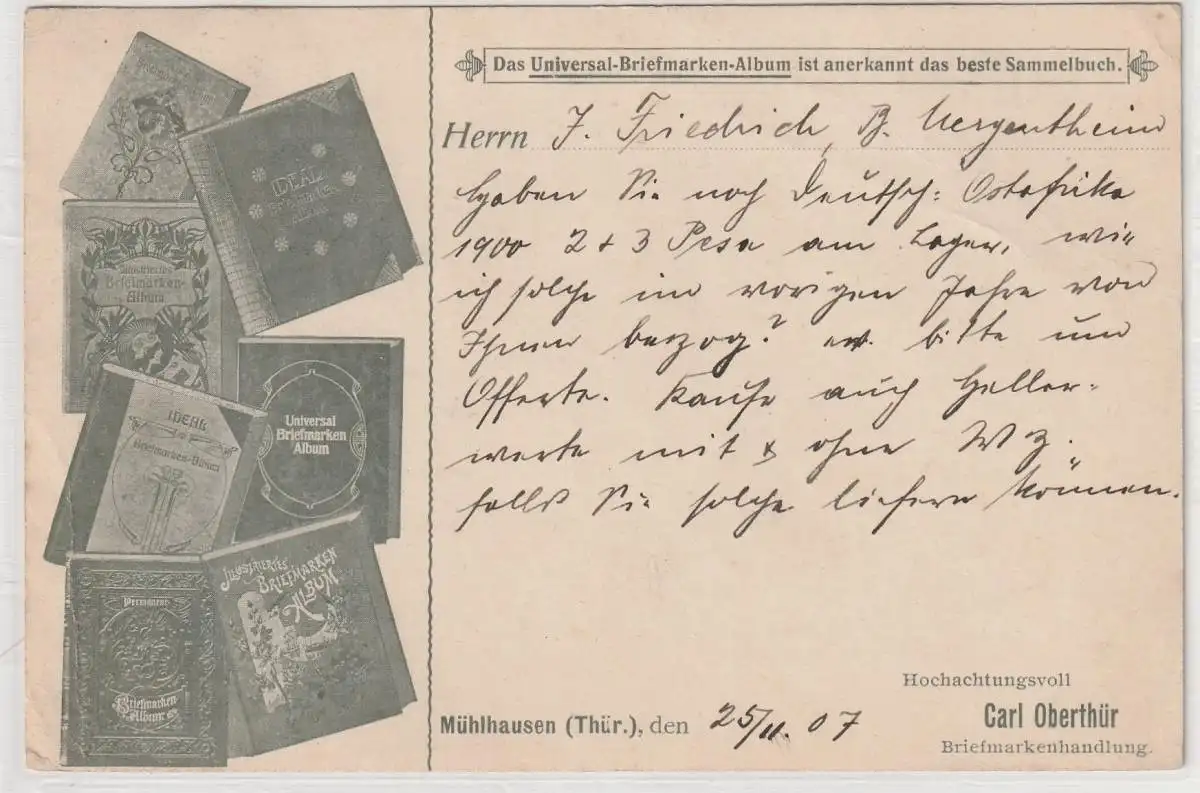 Das Universal-Briefmarken-Album ist anerkannt das beste Sammelbuch.
Herrn J. Friedrich, B. Mergentheim
Haben Sie noch Deutsch: Ostafrika
1900 2 + 3 Pesa am Lager, wie
ich solche im vorigen Jahre von
Ihnen bezog? ev. bitte um
Offerte. Kaufe auch Heller-
werte mit & ohne Wz.
falls Sie solche liefern können.
Hochachtungsvoll
Mühlhausen (Thür.), den 25/11. 07
Carl Oberthür
Briefmarkenhandlung.
IDEAL
Briefmarken-
Album
Illustriertes
Briefmarken-
Album
IDEAL
Briefmarken-Album
Universal
Briefmarken
Album
Illustriertes
Briefmarken
Album
Permanent
Briefmarken-
Album